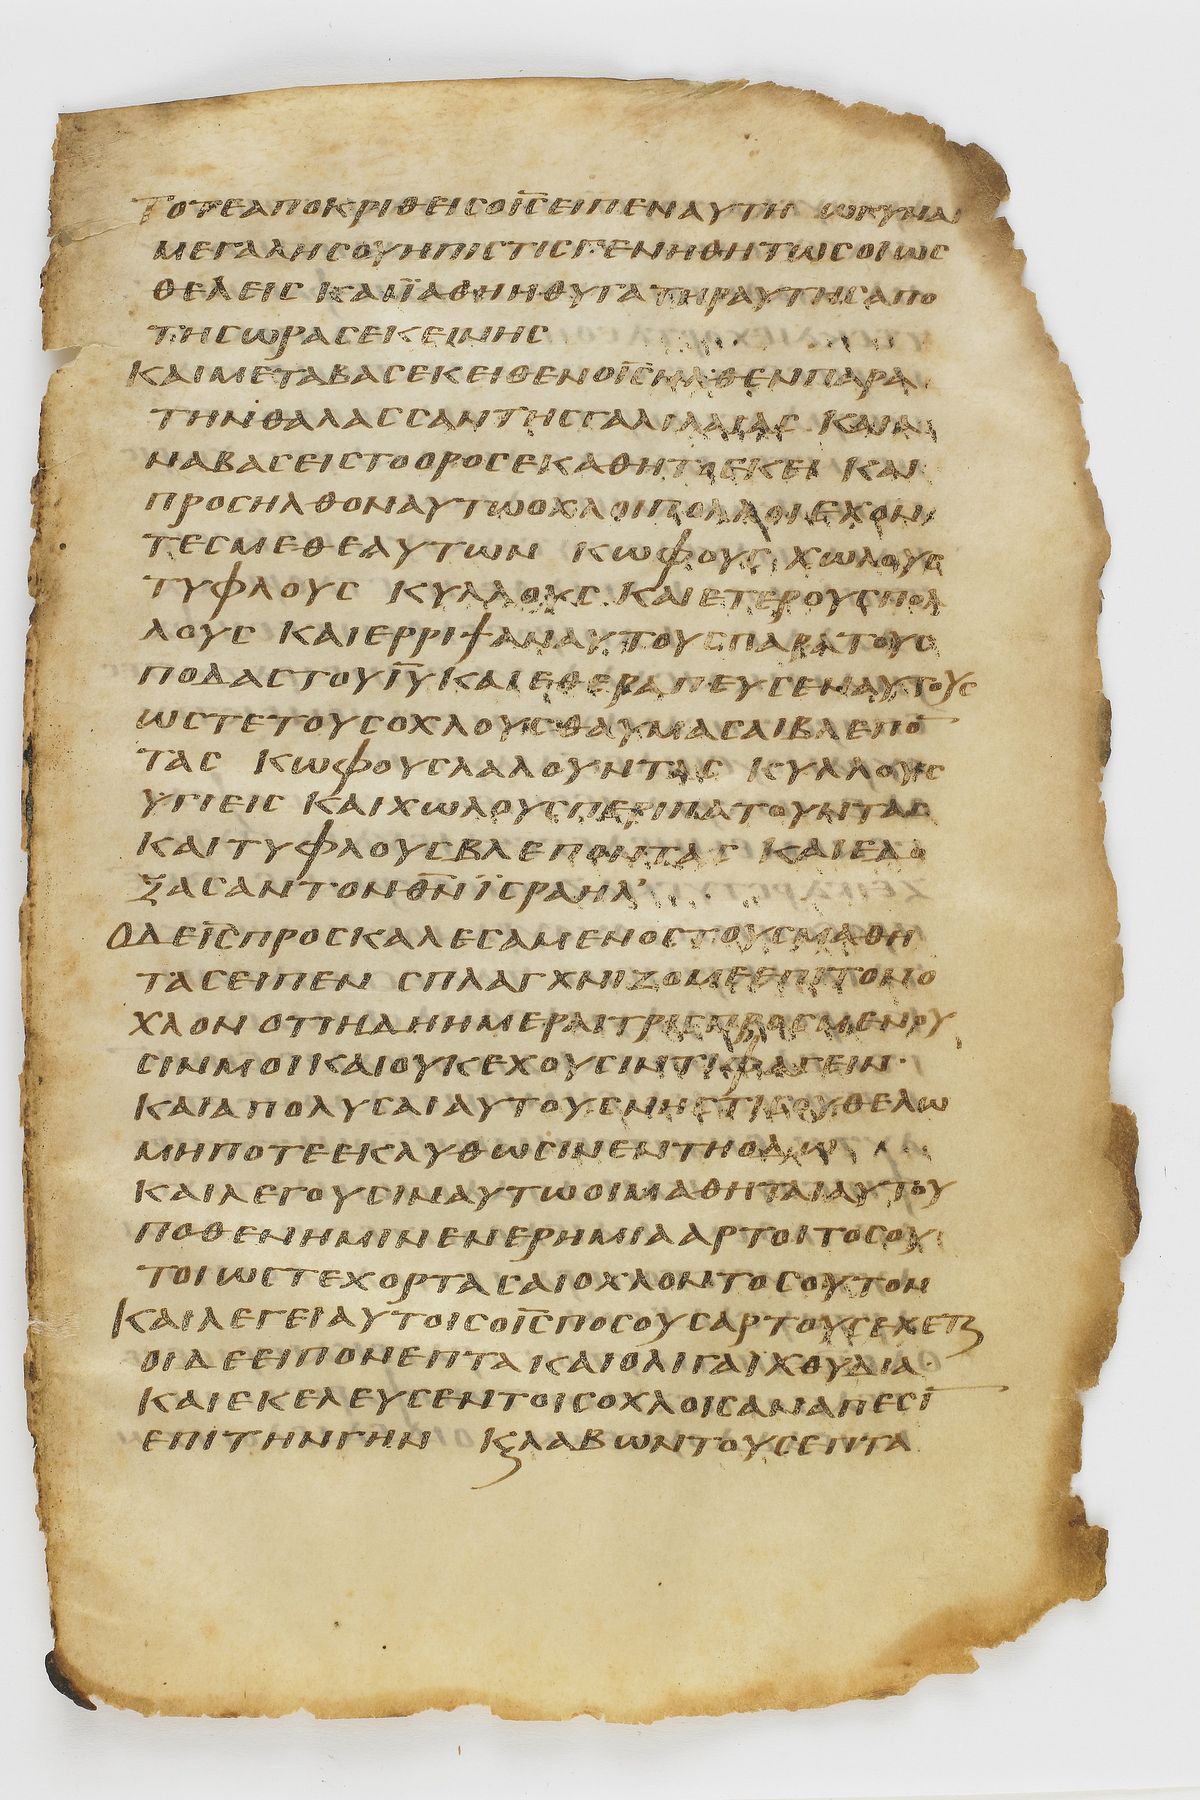 ΤΟΤΕΑΠΟΚΡΙΘΕΙϹΟΙ̅Ϲ̅ΕΙΠΕΝΑΥΤΗ ΩΓΥΝΑΙ
ΜΕΓΑΛΗϹΟΥΗΠΙϹΤΙϹΓΕΝΗΘΗΤΩϹΟΙΩϹ
ΘΕΛΕΙϹ ΚΑΙΪΑΘΗΗΘΥΓΑΤΗΡΑΥΤΗϹΑΠΟ
ΤΗϹΩΡΑϹΕΚΕΙΝΗϹ
ΚΑΙΜΕΤΑΒΑϹΕΚΕΙΘΕΝΟΙ̅Ϲ̅ΗΛΘΕΝΠΑΡΑ
ΤΗΝΘΑΛΑϹϹΑΝΤΗϹΓΑΛΙΛΑΙΑϹ ΚΑΙΑ
ΝΑΒΑϹΕΙϹΤΟΟΡΟϹΕΚΑΘΗΤΟΕΚΕΙ ΚΑΙ
ΠΡΟϹΗΛΘΟΝΑΥΤΩΟΧΛΟΙΠΟΛΛΟΙΕΧΟΝ
ΤΕϹΜΕΘΕΑΥΤΩΝ ΚΩΦΟΥϹ ΧΩΛΟΥϹ
ΤΥΦΛΟΥϹ ΚΥΛΛΟΥϹ ΚΑΙΕΤΕΡΟΥϹΠΟΛ
ΛΟΥϹ ΚΑΙΕΡΡΙΨΑΝΑΥΤΟΥϹΠΑΡΑΤΟΥϹ
ΠΟΔΑϹΤΟΥΙ̅Υ̅ΚΑΙΕΘΕΡΑΠΕΥϹΕΝΑΥΤΟΥϹ
ΩϹΤΕΤΟΥϹΟΧΛΟΥϹΘΑΥΜΑϹΑΙΒΛΕΠΟ̅
ΤΑϹ ΚΩΦΟΥϹΛΑΛΟΥΝΤΑϹ ΚΥΛΛΟΥϹ
ΥΓΙΕΙϹ ΚΑΙΧΩΛΟΥϹΠΕΡΙΠΑΤΟΥΝΤΑϹ
ΚΑΙΤΥΦΛΟΥϹΒΛΕΠΟΝΤΑϹ ΚΑΙΕΔΟ
ΞΑϹΑΝΤΟΝΘ̅Ν̅ΪϹΡΑΗΛ
ΟΔΕΙ̅Ϲ̅ΠΡΟϹΚΑΛΕϹΑΜΕΝΟϹΤΟΥϹΜΑΘΗ
ΤΑϹΕΙΠΕΝ ϹΠΛΑΓΧΝΙΖΟΜΕΕΠΙΤΟΝΟ
ΧΛΟΝΟΤΙΗΔΗΗΜΕΡΑΙΤΡΙϹΠΡΟϹΜΕΝΟΥ
ϹΙΝΜΟΙΚΑΙΟΥΚΕΧΟΥϹΙΝΤΙΦΑΓΕΙΝ·
ΚΑΙΑΠΟΛΥϹΑΙΑΥΤΟΥϹΝΗϹΤΙϹΟΥΘΕΛΩ
ΜΗΠΟΤΕΕΚΛΥΘΩϹΙΝΕΝΤΗΟΔΩ
ΚΑΙΛΕΓΟΥϹΙΝΑΥΤΩΟΙΜΑΘΗΤΑΙΑΥΤΟΥ
ΠΟΘΕΝΗΜΙΝΕΝΕΡΗΜΙΑΑΡΤΟΙΤΟϹΟΥ
ΤΟΙΩϹΤΕΧΟΡΤΑϹΑΙΟΧΛΟΝΤΟϹΟΥΤΟΝ
ΚΑΙΛΕΓΕΙΑΥΤΟΙϹΟΙ̅Ϲ̅ΠΟϹΟΥϹΑΡΤΟΥϹΕΧΕΤʒ
ΟΙΔΕΕΙΠΟΝΕΠΤΑΚΑΙΟΛΙΓΑΙΧΘΥΔΙΑ·
ΚΑΙΕΚΕΛΕΥϹΕΝΤΟΙϹΟΧΛΟΙϹΑΝΑΠΕϹΙ̅
ΕΠΙΤΗΝΓΗΝ ΚϗΛΑΒΩΝΤΟΥϹΕΠΤΑ